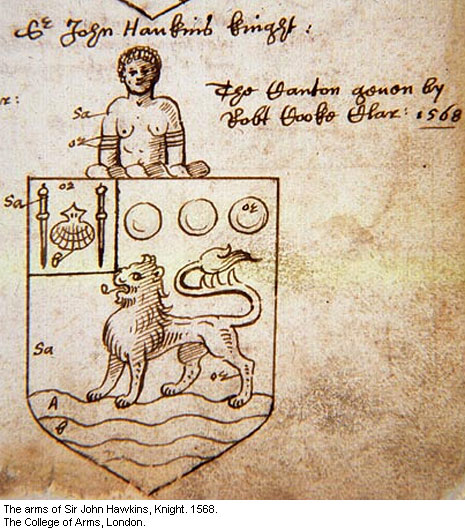 Sr John Hawkins knight:
The Canton geven by
Robt Cooke Clar: 1568
r:
Sa
or
Sa
or
or
B
Sa
or
A
B
The arms of Sir John Hawkins, Knight. 1568.
The College of Arms, London.